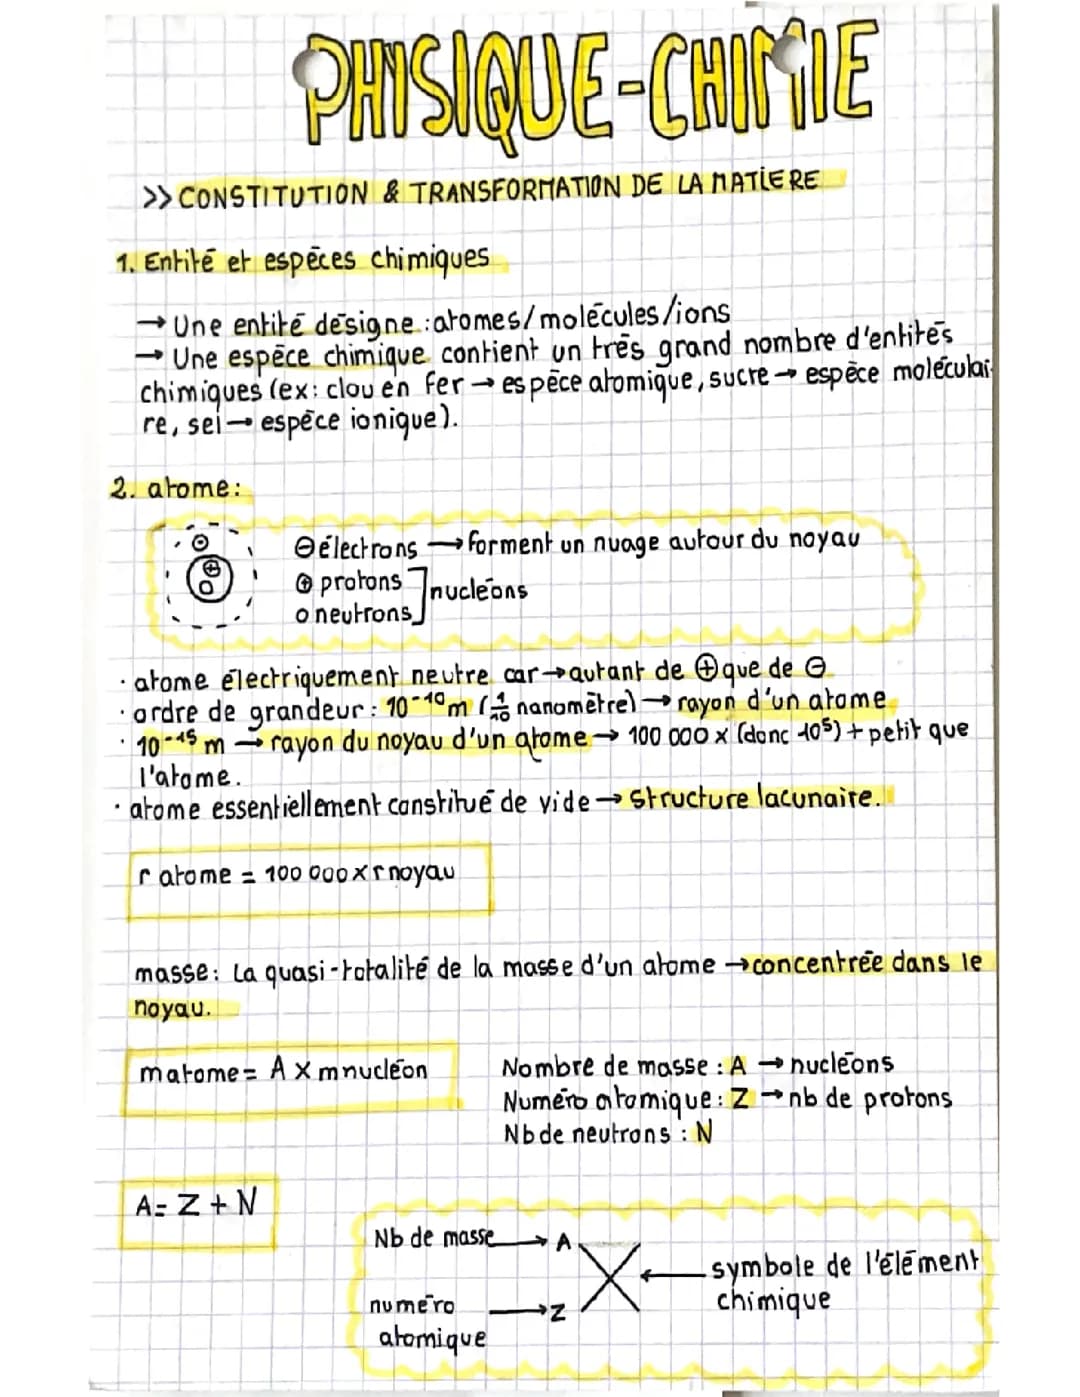 PHYSIQUE-CHIMIE
>> CONSTITUTION & TRANSFORMATION DE LA MATIERE
1. Entité et espèces chimiques
→ Une entité désigne : atomes/molécules/ions
→ Une espèce chimique contient un très grand nombre d'entités
chimiques (ex: clou en fer → espèce atomique, sucre → espèce moléculai-
re, sel → espèce ionique).
2. atome:
⊖ électrons → forment un nuage autour du noyau
⊕ protons ] nucléons
o neutrons
· atome électriquement neutre car → autant de ⊕ que de ⊖
· ordre de grandeur : 10⁻¹⁰ m (1/10 nanomètre) → rayon d'un atome
· 10⁻¹⁵ m → rayon du noyau d'un atome → 100 000 x (donc 10⁵) + petit que
l'atome.
· atome essentiellement constitué de vide → structure lacunaire.
r atome = 100 000 x r noyau
masse: La quasi-totalité de la masse d'un atome → concentrée dans le
noyau.
m atome = A x m nucléon
Nombre de masse : A → nucléons
Numéro atomique : Z → nb de protons
Nb de neutrons : N
A = Z + N
Nb de masse → A
X ← symbole de l'élément
chimique
numéro → Z
atomique